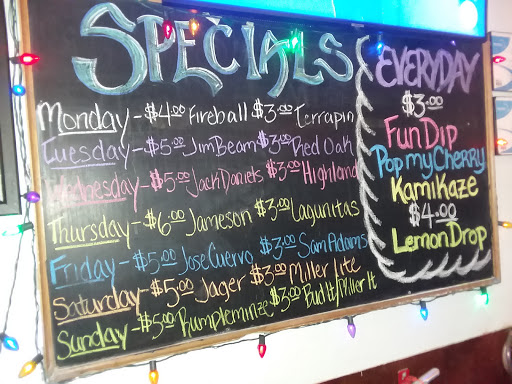 SPECIALS
Monday - $4.00 Fireball $3.00 Terrapin
Tuesday - $5.00 Jim Beam $3.00 Red Oak
Wednesday - $5.00 Jack Daniels $3.00 Highland
Thursday - $6.00 Jameson $3.00 Lagunitas
Friday - $5.00 Jose Cuervo $3.00 Sam Adams
Saturday - $5.00 Jager $3.00 Miller lite
Sunday - $5.00 Rumpleminze $3.00 Bud lt/Miller lt
EVERYDAY
$3.00
Fun Dip
Pop my Cherry
Kamikaze
$4.00
Lemon Drop